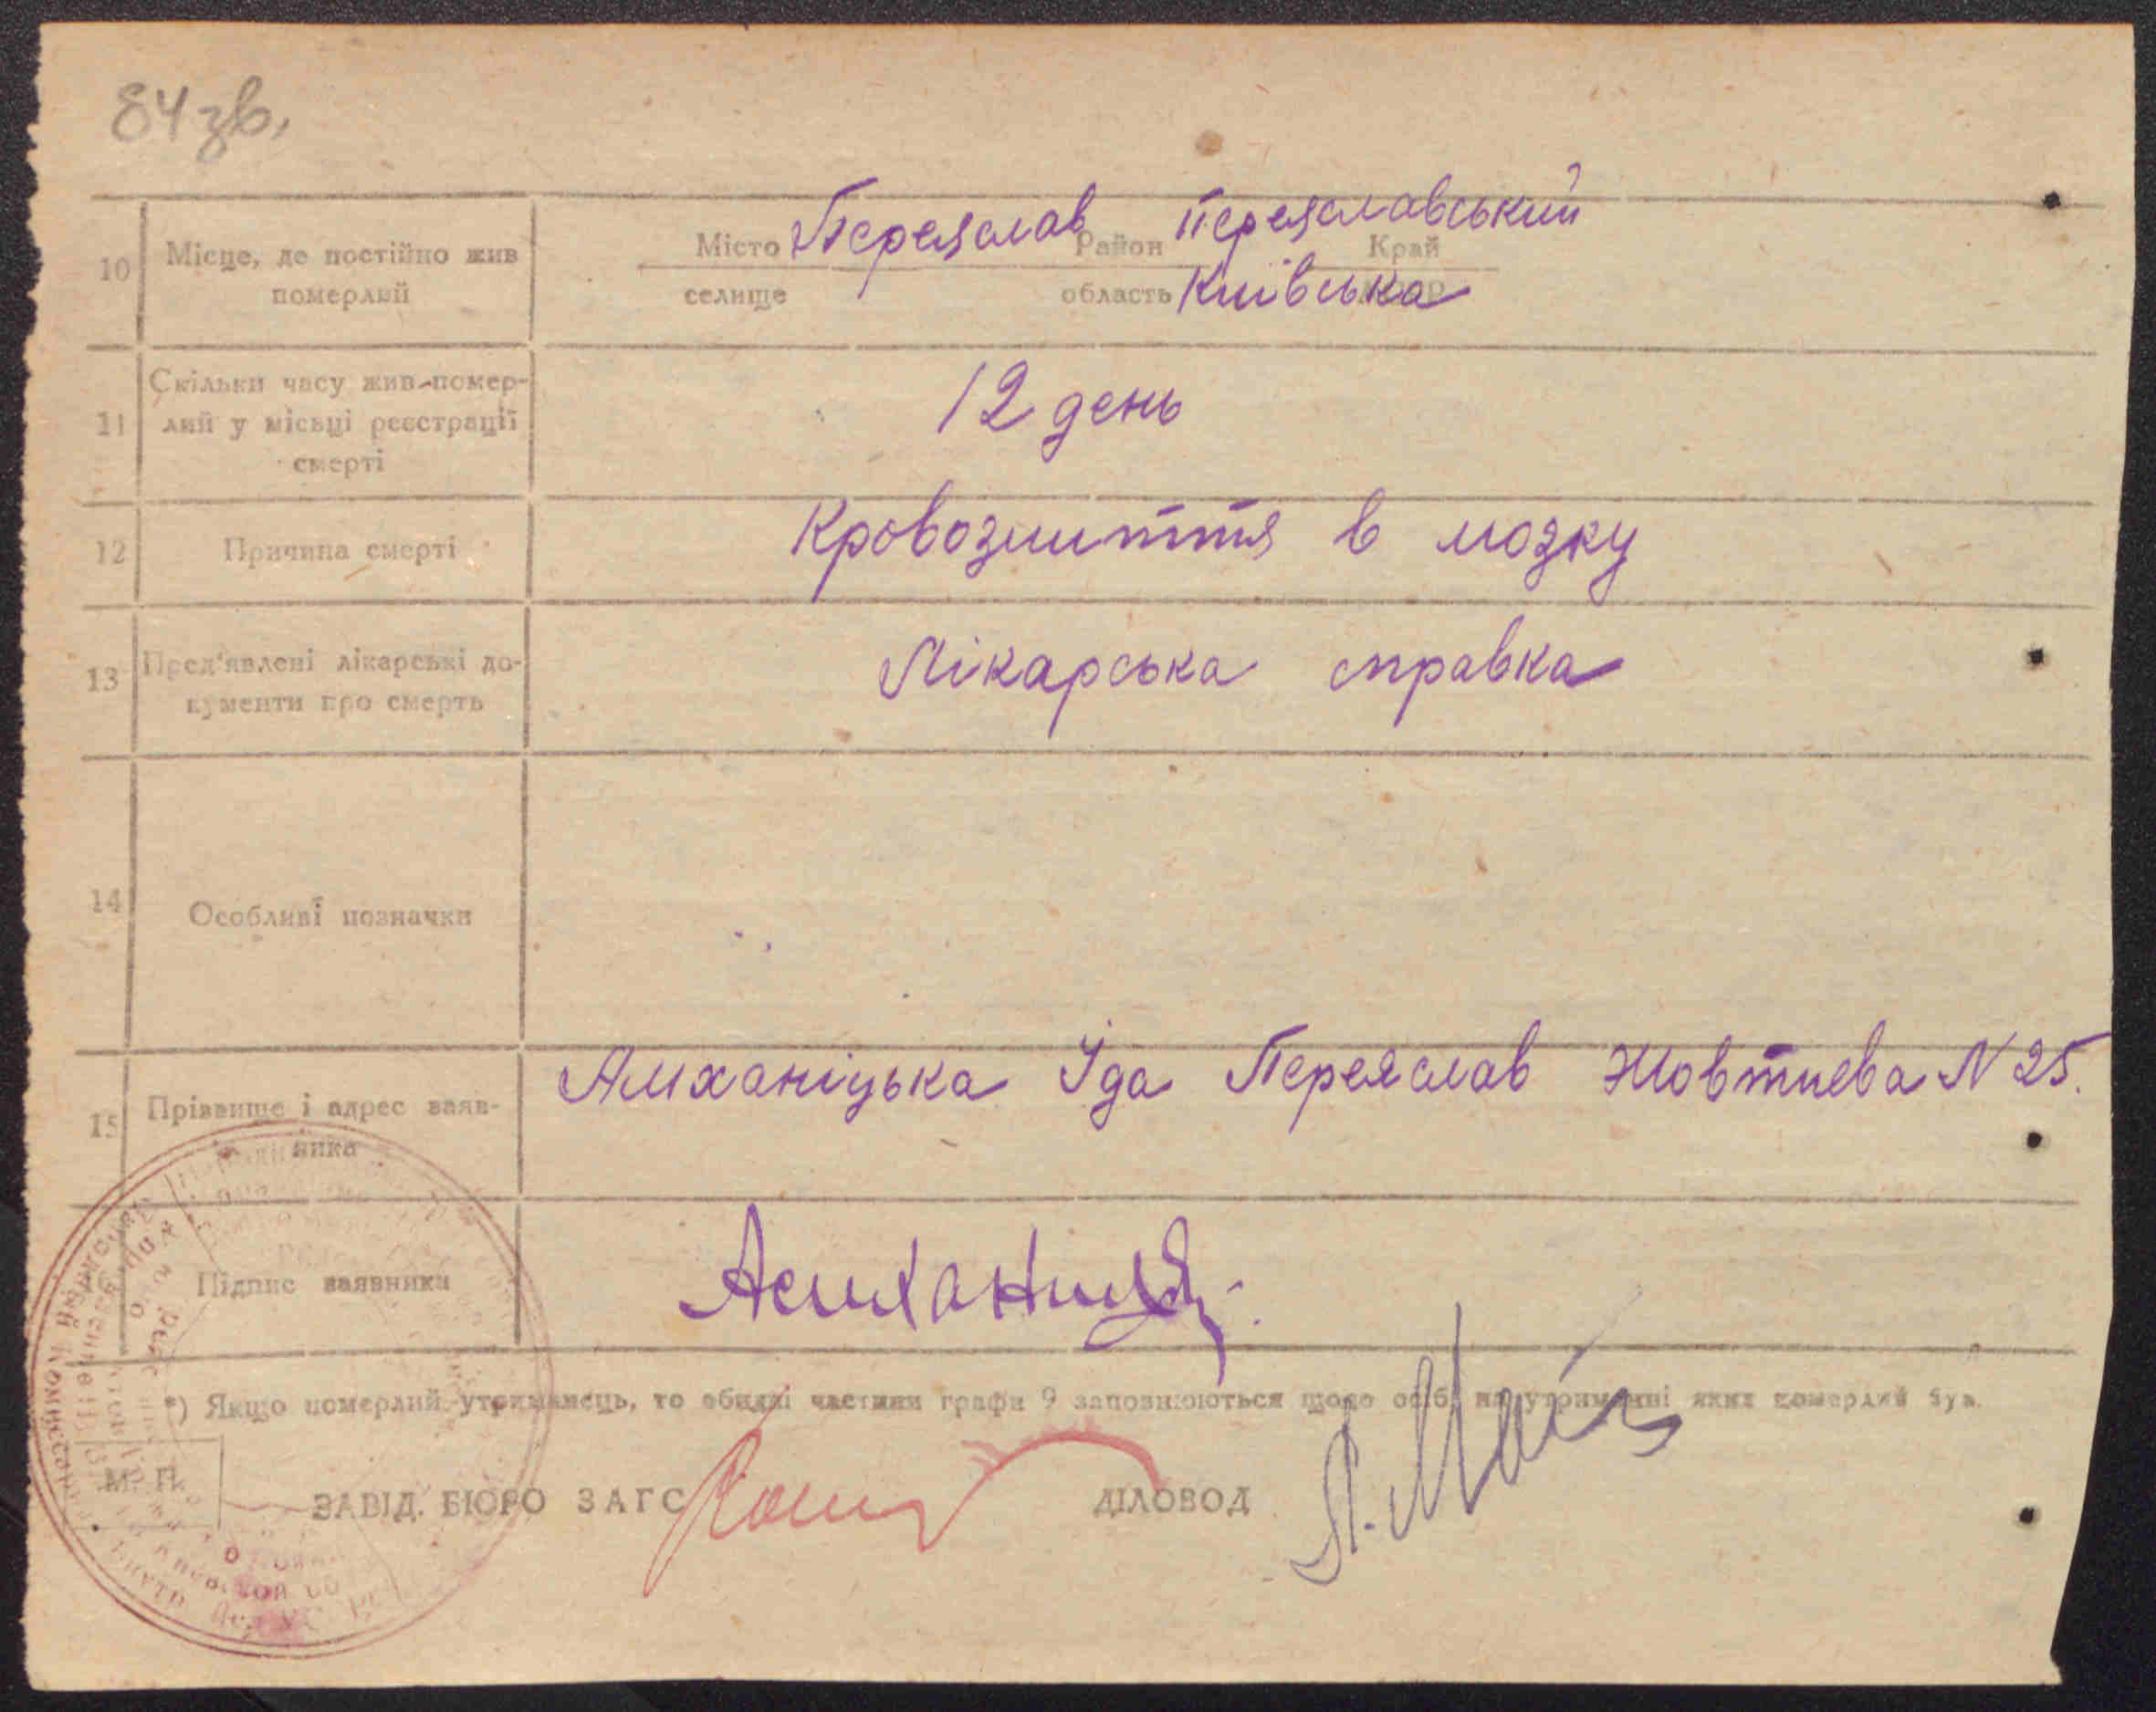 84 зв.
10 Місце, де постійно жив померлий
Місто Переяслав Район Переяславський Край
селище область Київська
11 Скільки часу жив помер-
лий у місьці реєстрації
смерті
12 день
12 Причина смерті
Кровозлиття в мозку
13 Пред'явлені лікарські до-
кументи про смерть
Лікарська справка
14 Особливі позначки
15 Прізвище і адрес заяв-
ника
Ямханіцька Їда Переяслав Жовтнева N 25.
Підпис заявника
*) Якщо померлий утриманець, то обидві частини графи 9 заповнюються щодо осіб, на утриманні яких померлий був.
М. П.
ЗАВІД. БЮРО ЗАГС ДІЛОВОД